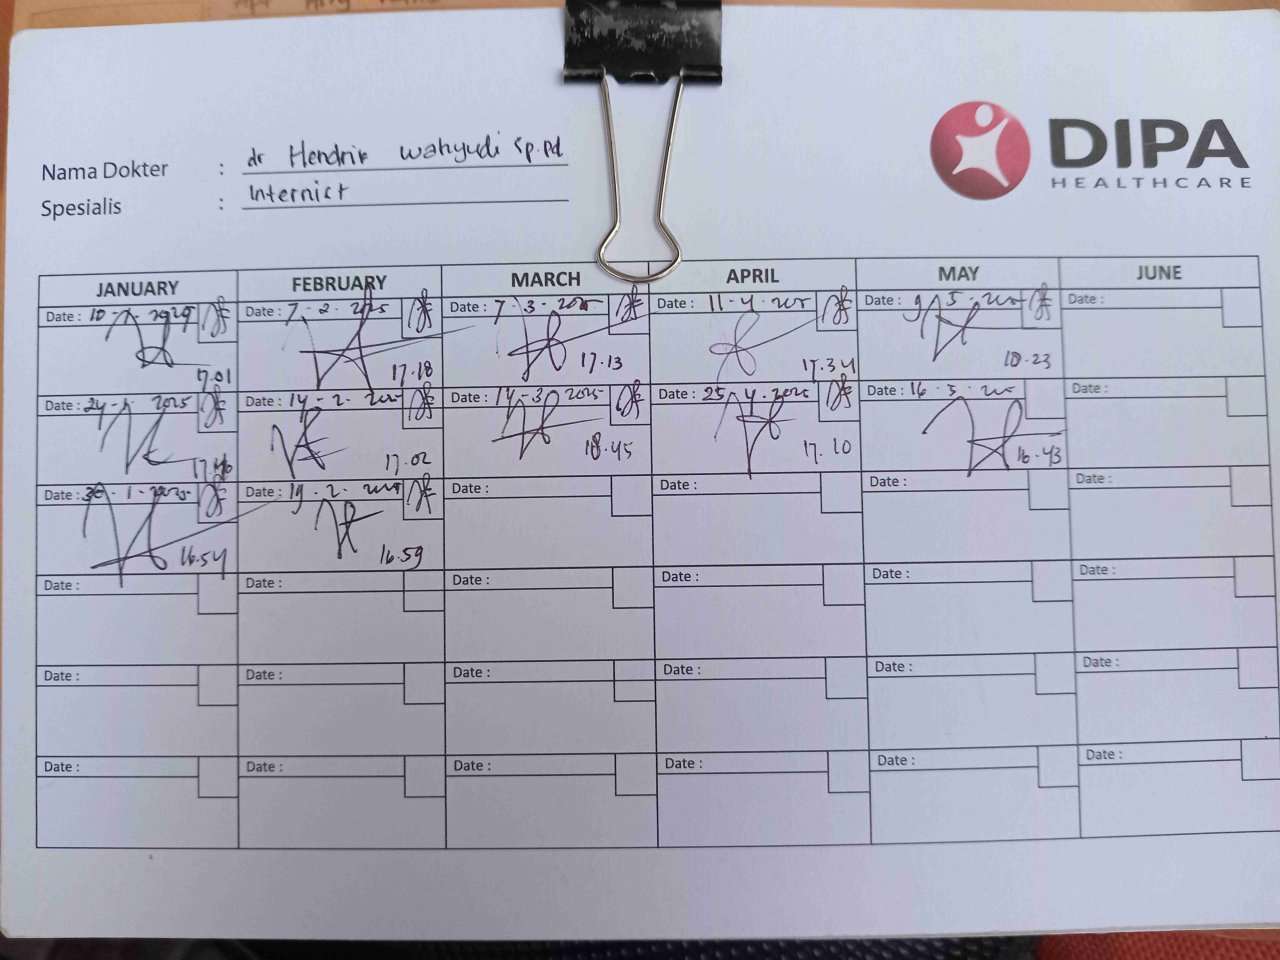 DIPA
HEALTHCARE
Nama Dokter : dr Hendrik Wahyudi Sp.Pd
Spesialis : Internist
JANUARY FEBRUARY MARCH APRIL MAY JUNE
Date : 10 Date : 7-2-2025 Date : 7-3-2025 Date : 11-4-2025 Date : 9-5-2025 Date :
17.01 17.18 17.13 17.34 18.23
Date : 24-1-2025 Date : 14-2-2025 Date : 14-3-2025 Date : 25-4-2025 Date : 16-5-2025 Date :
17.46 17.02 18.45 17.10 16.43
Date : -1-2025 Date : 19-2-2025 Date : Date : Date : Date :
16.54 16.59
Date : Date : Date : Date : Date : Date :
Date : Date : Date : Date : Date : Date :
Date : Date : Date : Date : Date : Date :